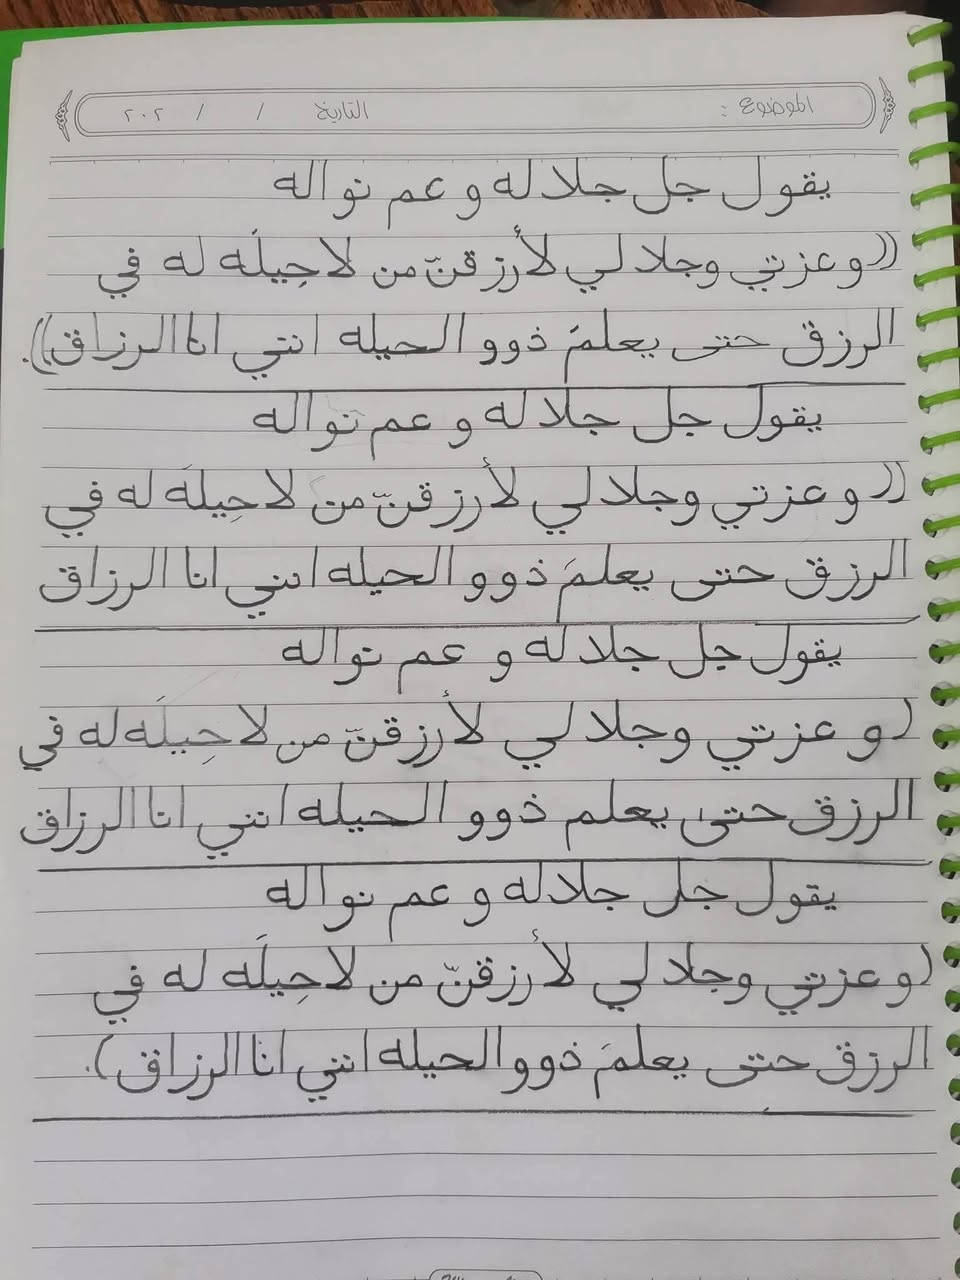 الموضوع : التاريخ / / ٢٠٢
يقول جل جلاله و عم نواله
((وعزتي وجلالي لأرزقنّ من لا حِيلَه له في
الرزق حتى يعلمَ ذوو الحيله انني انا الرزاق)).
يقول جل جلاله و عم نواله
((وعزتي وجلالي لأرزقنّ من لا حِيلَه له في
الرزق حتى يعلمَ ذوو الحيله انني انا الرزاق
يقول جل جلاله و عم نواله
(وعزتي وجلالي لأرزقنّ من لا حِيلَه له في
الرزق حتى يعلم ذوو الحيله انني انا الرزاق
يقول جل جلاله و عم نواله
(وعزتي وجلالي لأرزقنّ من لا حِيلَه له في
الرزق حتى يعلمَ ذوو الحيله انني انا الرزاق).